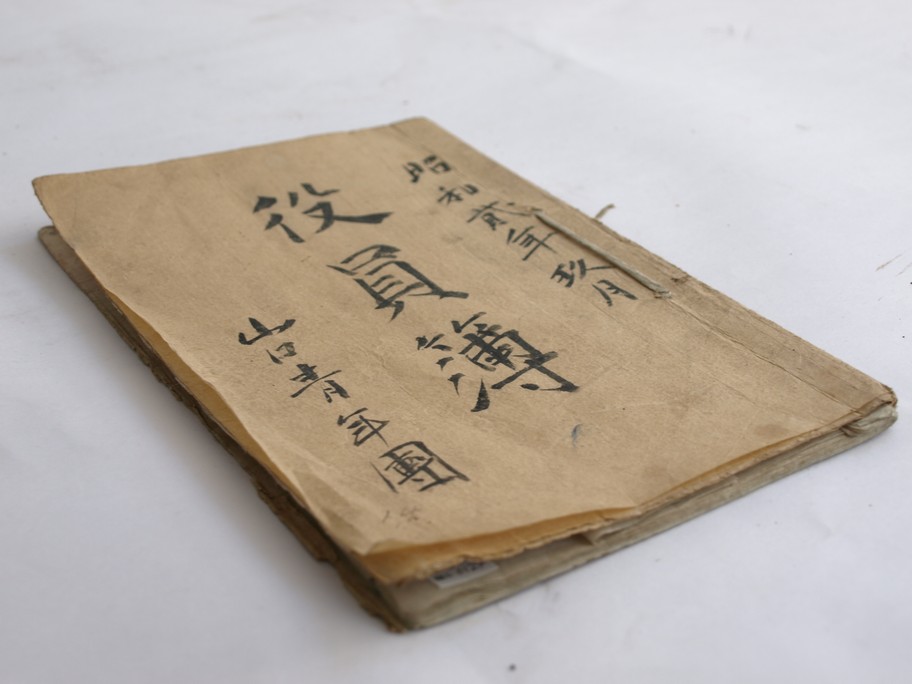 昭和貮年玖月
役員簿
山口青年團